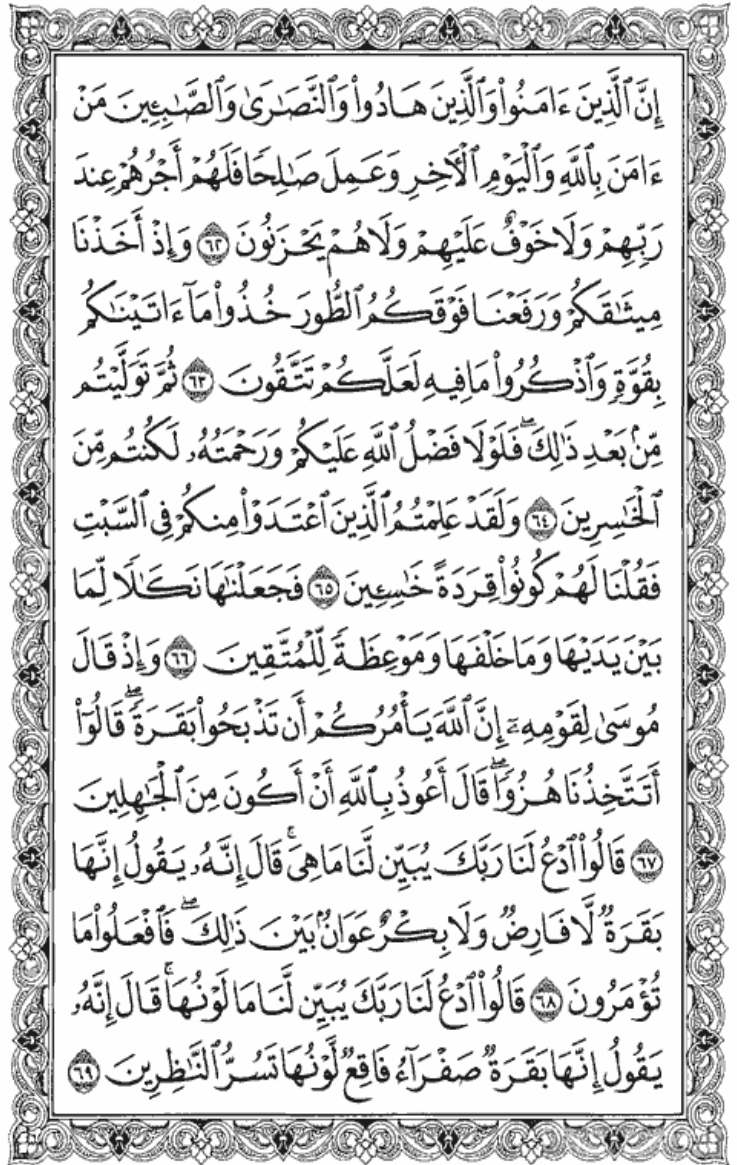 إِنَّ ٱلَّذِينَ ءَامَنُوا۟ وَٱلَّذِينَ هَادُوا۟ وَٱلنَّصَٰرَىٰ وَٱلصَّٰبِـِٔينَ مَنْ
ءَامَنَ بِٱللَّهِ وَٱلْيَوْمِ ٱلْأَخِرِ وَعَمِلَ صَٰلِحًا فَلَهُمْ أَجْرُهُمْ عِندَ
رَبِّهِمْ وَلَا خَوْفٌ عَلَيْهِمْ وَلَا هُمْ يَحْزَنُونَ ٦٢ وَإِذْ أَخَذْنَا
مِيثَٰقَكُمْ وَرَفَعْنَا فَوْقَكُمُ ٱلطُّورَ خُذُوا۟ مَآ ءَاتَيْنَٰكُم
بِقُوَّةٍ وَٱذْكُرُوا۟ مَا فِيهِ لَعَلَّكُمْ تَتَّقُونَ ٦٣ ثُمَّ تَوَلَّيْتُم
مِّنۢ بَعْدِ ذَٰلِكَ ۖ فَلَوْلَا فَضْلُ ٱللَّهِ عَلَيْكُمْ وَرَحْمَتُهُۥ لَكُنتُم مِّنَ
ٱلْخَٰسِرِينَ ٦٤ وَلَقَدْ عَلِمْتُمُ ٱلَّذِينَ ٱعْتَدَوْا۟ مِنكُمْ فِى ٱلسَّبْتِ
فَقُلْنَا لَهُمْ كُونُوا۟ قِرَدَةً خَٰسِـِٔينَ ٦٥ فَجَعَلْنَٰهَا نَكَٰلًا لِّمَا
بَيْنَ يَدَيْهَا وَمَا خَلْفَهَا وَمَوْعِظَةً لِّلْمُتَّقِينَ ٦٦ وَإِذْ قَالَ
مُوسَىٰ لِقَوْمِهِۦٓ إِنَّ ٱللَّهَ يَأْمُرُكُمْ أَن تَذْبَحُوا۟ بَقَرَةً ۖ قَالُوٓا۟
أَتَتَّخِذُنَا هُزُوًا ۖ قَالَ أَعُوذُ بِٱللَّهِ أَنْ أَكُونَ مِنَ ٱلْجَٰهِلِينَ
٦٧ قَالُوا۟ ٱدْعُ لَنَا رَبَّكَ يُبَيِّن لَّنَا مَا هِىَ ۚ قَالَ إِنَّهُۥ يَقُولُ إِنَّهَا
بَقَرَةٌ لَّا فَارِضٌ وَلَا بِكْرٌ عَوَانٌۢ بَيْنَ ذَٰلِكَ ۖ فَٱفْعَلُوا۟ مَا
تُؤْمَرُونَ ٦٨ قَالُوا۟ ٱدْعُ لَنَا رَبَّكَ يُبَيِّن لَّنَا مَا لَوْنُهَا ۚ قَالَ إِنَّهُۥ
يَقُولُ إِنَّهَا بَقَرَةٌ صَفْرَآءُ فَاقِعٌ لَّوْنُهَا تَسُرُّ ٱلنَّٰظِرِينَ ٦٩